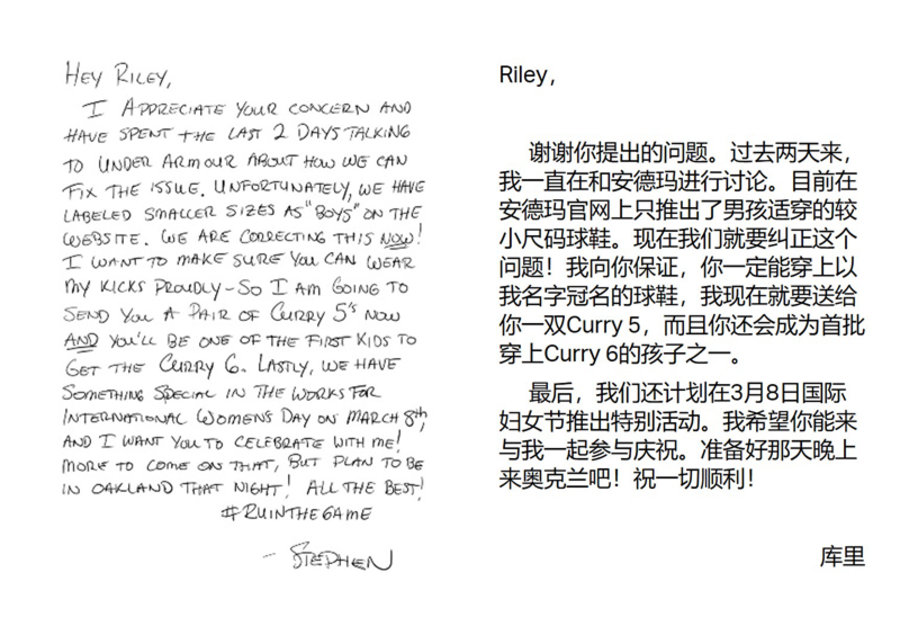 HEY RILEY,
I APPRECIATE YOUR CONCERN AND
HAVE SPENT THE LAST 2 DAYS TALKING
TO UNDER ARMOUR ABOUT HOW WE CAN
FIX THE ISSUE. UNFORTUNATELY, WE HAVE
LABELED SMALLER SIZES AS "BOYS" ON THE
WEBSITE. WE ARE CORRECTING THIS NOW!
I WANT TO MAKE SURE YOU CAN WEAR
MY KICKS PROUDLY - SO I AM GOING TO
SEND YOU A PAIR OF CURRY 5's NOW
AND YOU'LL BE ONE OF THE FIRST KIDS TO
GET THE CURRY 6. LASTLY, WE HAVE
SOMETHING SPECIAL IN THE WORKS FOR
INTERNATIONAL WOMENS DAY ON MARCH 8th,
AND I WANT YOU TO CELEBRATE WITH ME!
MORE TO COME ON THAT, BUT PLAN TO BE
IN OAKLAND THAT NIGHT! ALL THE BEST!
#RUINTHEGAME
- STEPHEN
Riley,
谢谢你提出的问题。过去两天来，
我一直在和安德玛进行讨论。目前在
安德玛官网上只推出了男孩适穿的较
小尺码球鞋。现在我们就要纠正这个
问题！我向你保证，你一定能穿上以
我名字冠名的球鞋，我现在就要送给
你一双Curry 5，而且你还会成为首批
穿上Curry 6的孩子之一。
最后，我们还计划在3月8日国际
妇女节推出特别活动。我希望你能来
与我一起参与庆祝。准备好那天晚上
来奥克兰吧！祝一切顺利！
库里